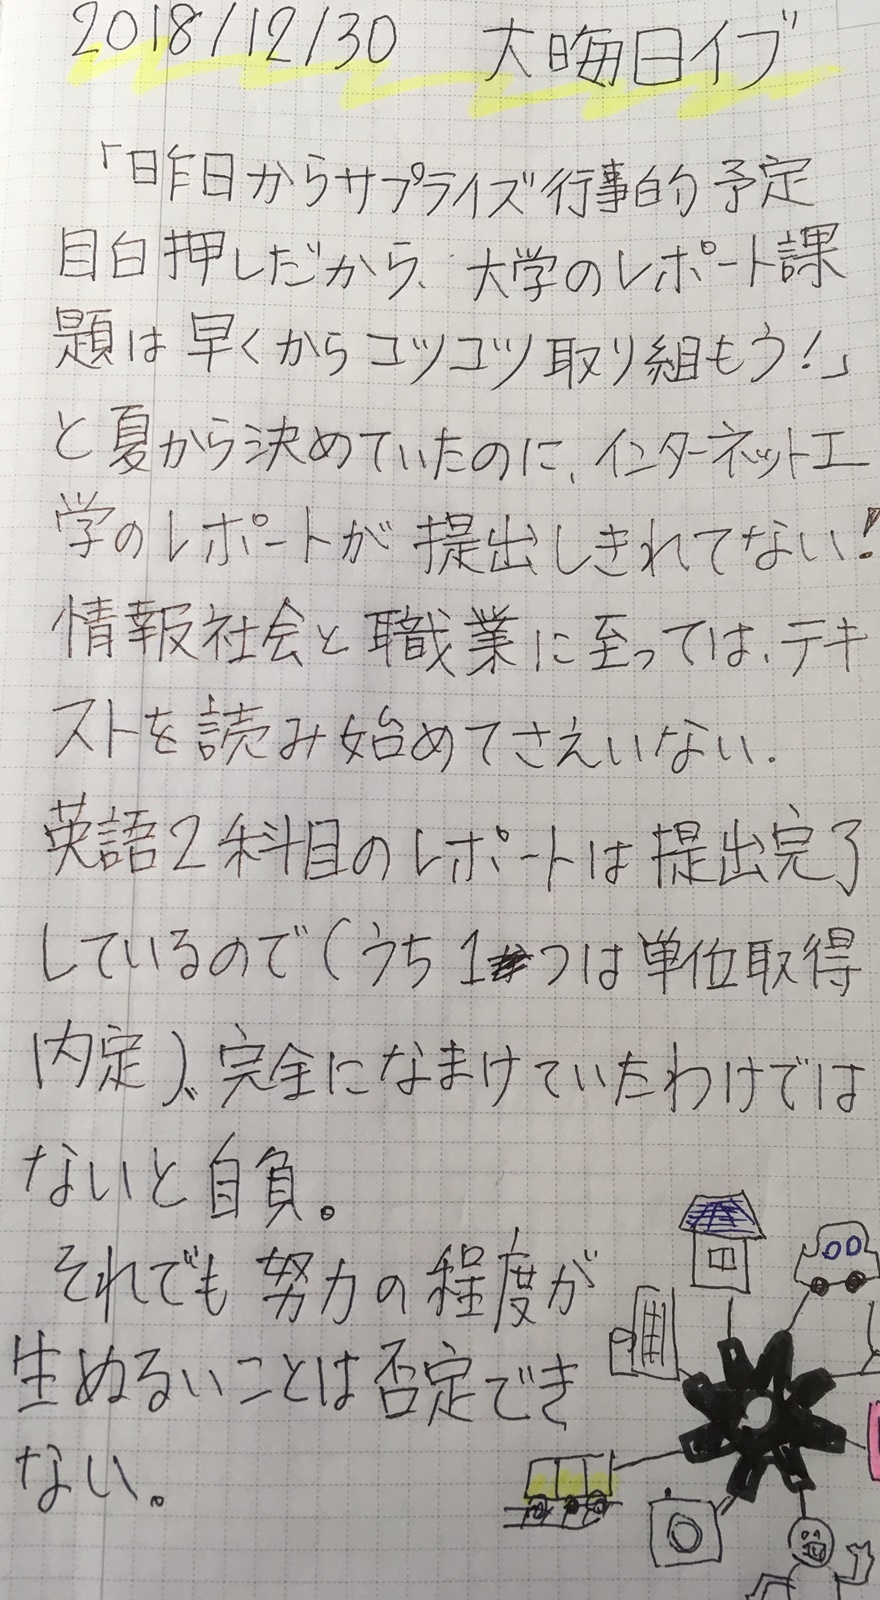 2018/12/30 大晦日イブ
「昨日からサプライズ行事的予定
目白押しだから、大学のレポート課
題は早くからコツコツ取り組もう!」
と夏から決めていたのに、インターネット工
学のレポートが提出しきれてない!
情報社会と職業に至っては、テキ
ストを読み始めてさえいない.
英語2科目のレポートは提出完了
しているので(うち1つは単位取得
内定)、完全になまけていたわけでは
ないと自負。
それでも努力の程度が
生ぬるいことは否定でき
ない。